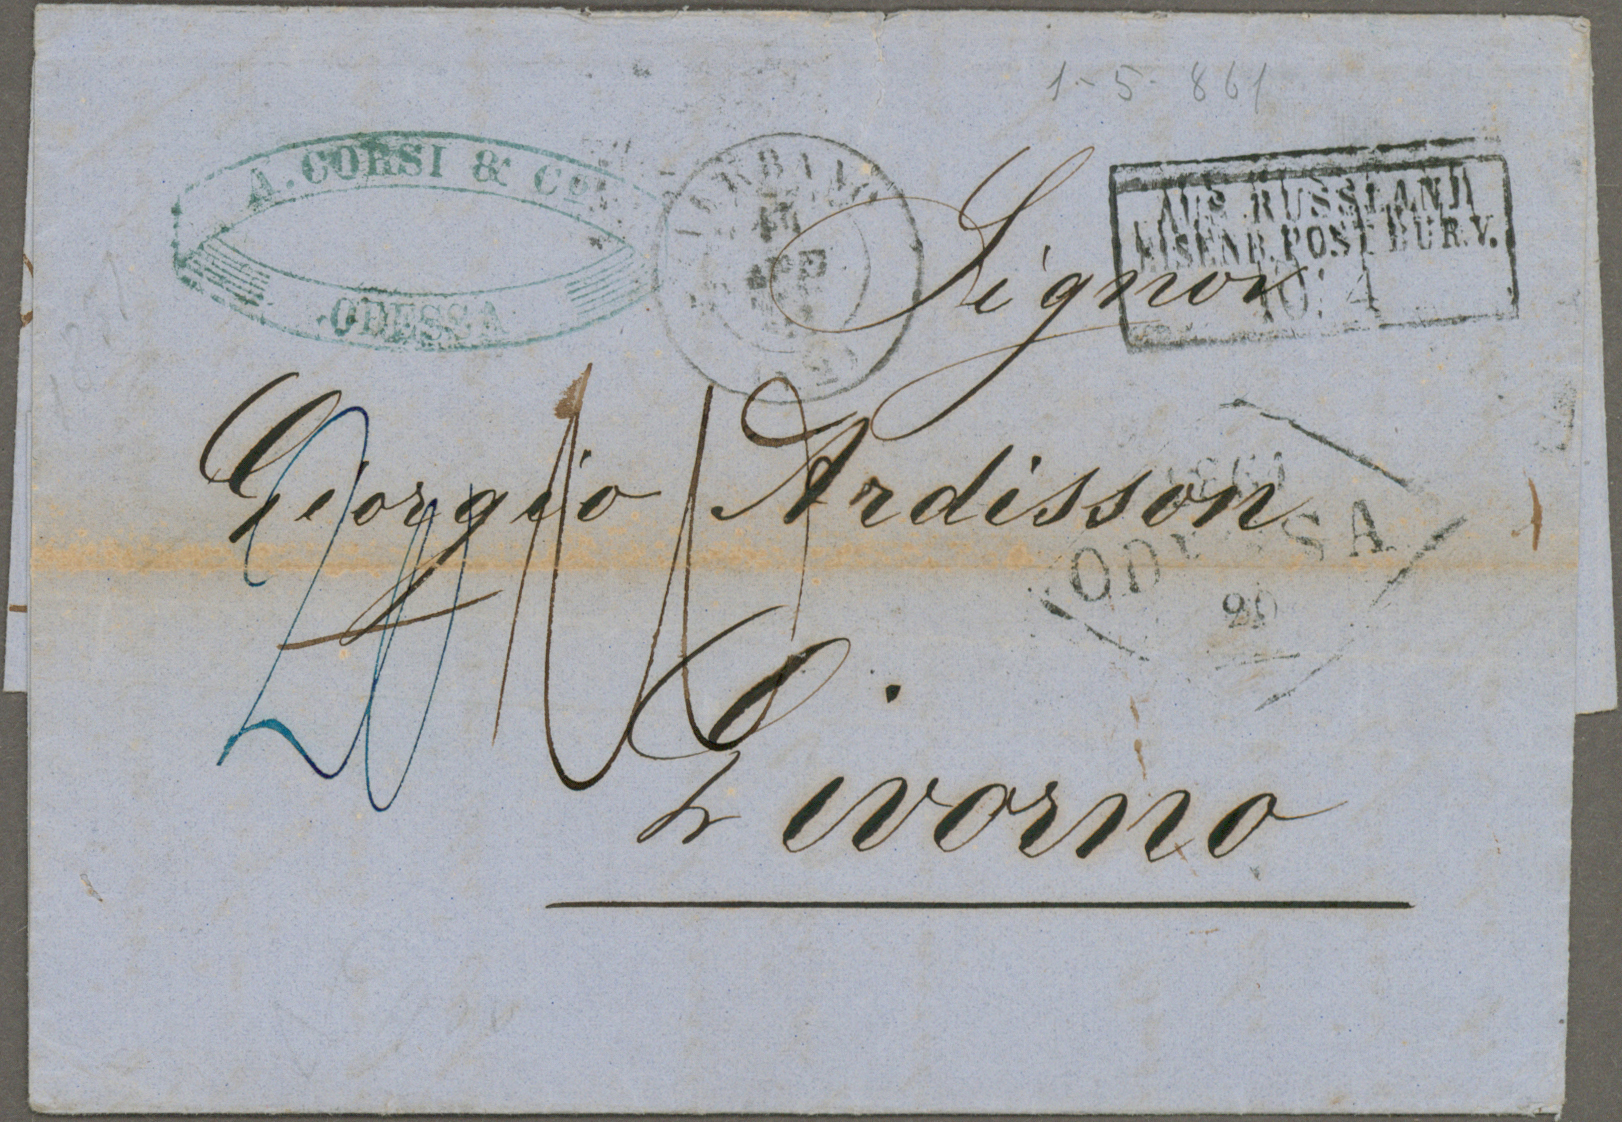 1-5-861
A. CORSI & Co
ODESSA
AUS RUSSLAND
EISENB. POST BUR. V.
10. 4
Signor
Giorgio Ardisson
Livorno
1861
ODESSA
20